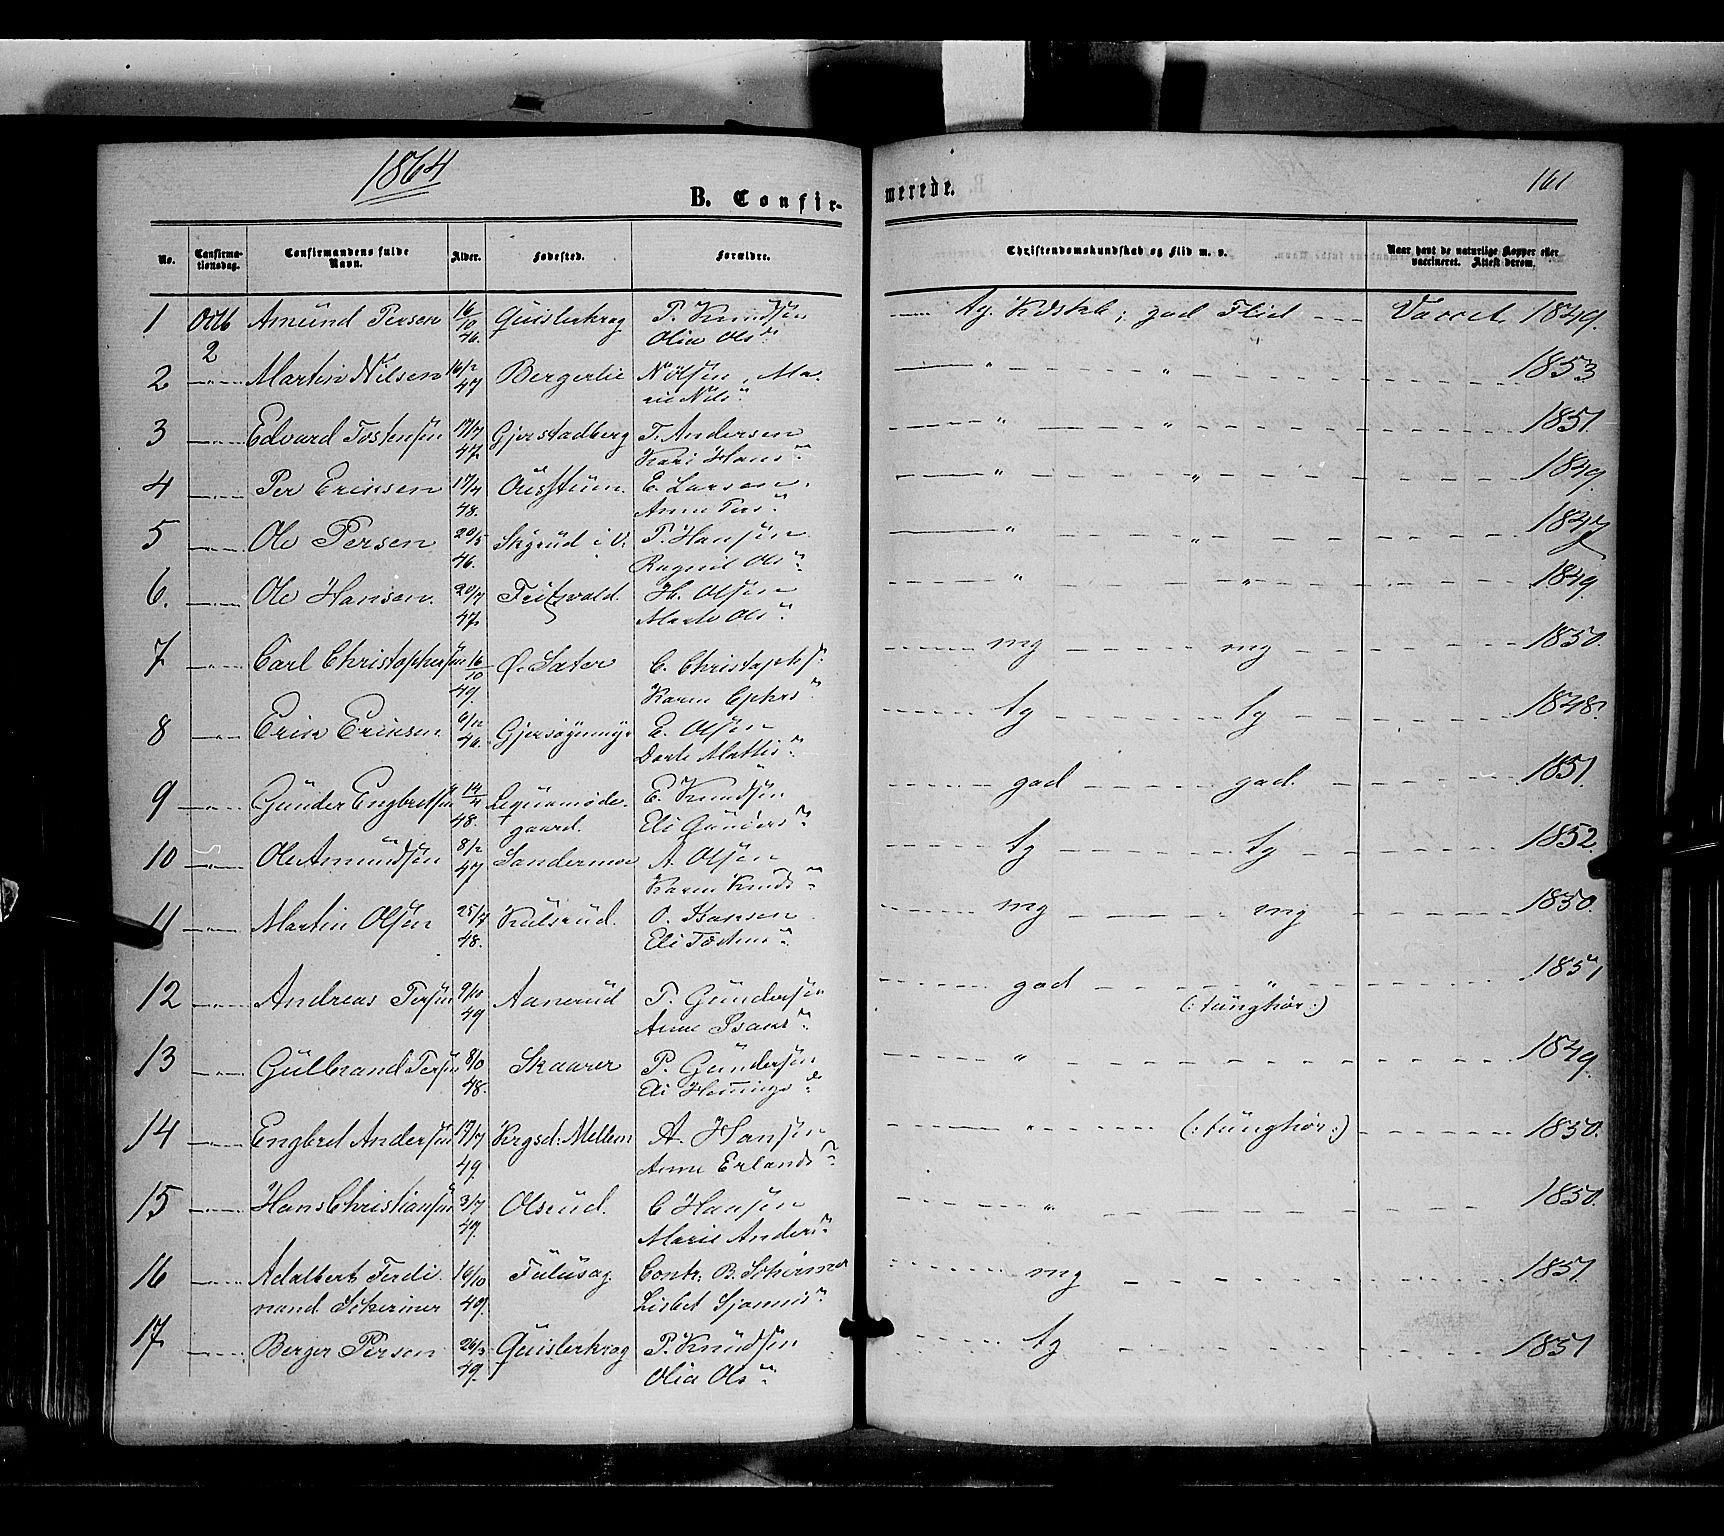 1864
161
B. Confirmerede.
No. Confirmationsdag. Confirmandens fulde Navn. Alder. Fødested. Forældre. Christendomskundskab og Flid m. v. Naar havt de naturlige Kopper eller vaccineret. Attest derom.
1 Octb 2 Amund Persen 16/10 46. Quislerkrog P. Knudsøn Olia Olsd: tg. Kdskb; god Flid Vacct. 1849.
2 —"— Martin Nilsen 16/2 47 Bergerlie N Olsøn, Marie Nilsd: " " 1853
3 —"— Edvard Tostensøn 17/7 47 Gjerstadberg T. Andersen Kari Hansd: " " 1851.
4 —"— Per Ericksen 17/4 48. Austtum. E. Larsen, Anne Persd: " " 1849
5 —"— Ole Persen 20/5 46. Skyrud i V. P. Hansøn Ragnil Olsd: " " 1847
6. —"— Ole Hansen. 20/7 47 H. Olsøn Marte Olsd: " " 1849.
7 —"— Carl Christophersøn 16/10 49. Ø. Sæter C. Christophs: Karen Ephrsd: mg mg 1850.
8 —"— Erik Ericksen 6/12 46. E. Olsøn Dorte Mattisd: tg tg 1848.
9 —"— Gunder Engbretsøn 14/4 48. E. Knudsøn Eli Gundersd: god god. 1851.
10 —"— Ole Amundsøn 8/2 47 Sandermoe A. Olsøn Karen Knudsd: tg tg 1852.
11 —"— Martin Olsøn 25/7 48. Kulsrud. O. Hansen Eli Tostensd: mg mg 1850.
12 —"— Andreas Persøn 9/10 49 Aanerud P. Gundersøn Anne Isaksd: god " (: tunghør :) 1851
13 —"— Gulbrand Persøn 8/10 48. Skaarer P. Gundersøn Eli Hemingsd: " 1849.
14 —"— Engbret Andersøn 17/7 49. Krgsd: Mellem A. Hansøn Anne Erlandsd: " (: tunghør :) 1850.
15 —"— Hans Christiansøn 3/7 49. Olsrud. C Hansøn Marie Andersd: " 1850.
16 —"— Adalbert Ferdinand Schirmer 16/10 49. Contr: B. Schirmer Lisbet mg 1851
17 —"— Berger Persen 26/3 49. Quislerkrog P. Knudsøn Olia Olsd: tg 1851